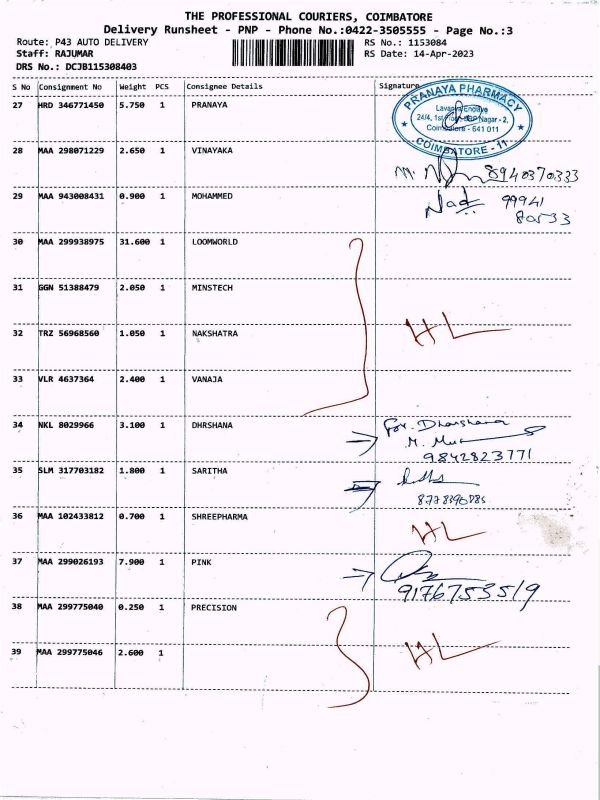 THE PROFESSIONAL COURIERS, COIMBATORE
Delivery Runsheet - PNP - Phone No.:0422-3505555 - Page No.:3
Route: P43 AUTO DELIVERY RS No.: 1153084
Staff: RAJUMAR RS Date: 14-Apr-2023
DRS No.: DCJB115308403
S No Consignment No Weight PCS Consignee Details Signature
27 HRD 346771450 5.750 1 PRANAYA
PRANAYA PHARMACY
Lavanya Enclave
24/4, 1st Floor Nagar - 2,
Coimbatore - 641 011
COIMBATORE - 11
28 MAA 298071229 2.650 1 VINAYAKA
8940370333
29 MAA 943008431 0.900 1 MOHAMMED
99941
80533
30 MAA 299938975 31.600 1 LOOMWORLD
31 GGN 51388479 2.050 1 MINSTECH
HL
32 TRZ 56968560 1.050 1 NAKSHATRA
33 VLR 4637364 2.400 1 VANAJA
34 NKL 8029966 3.100 1 DHRSHANA
For. Dharshana
9842823771
35 SLM 317703182 1.800 1 SARITHA
36 MAA 102433812 0.700 1 SHREEPHARMA
HL
37 MAA 299026193 7.900 1 PINK
9176753519
38 MAA 299775040 0.250 1 PRECISION
HL
39 MAA 299775046 2.600 1